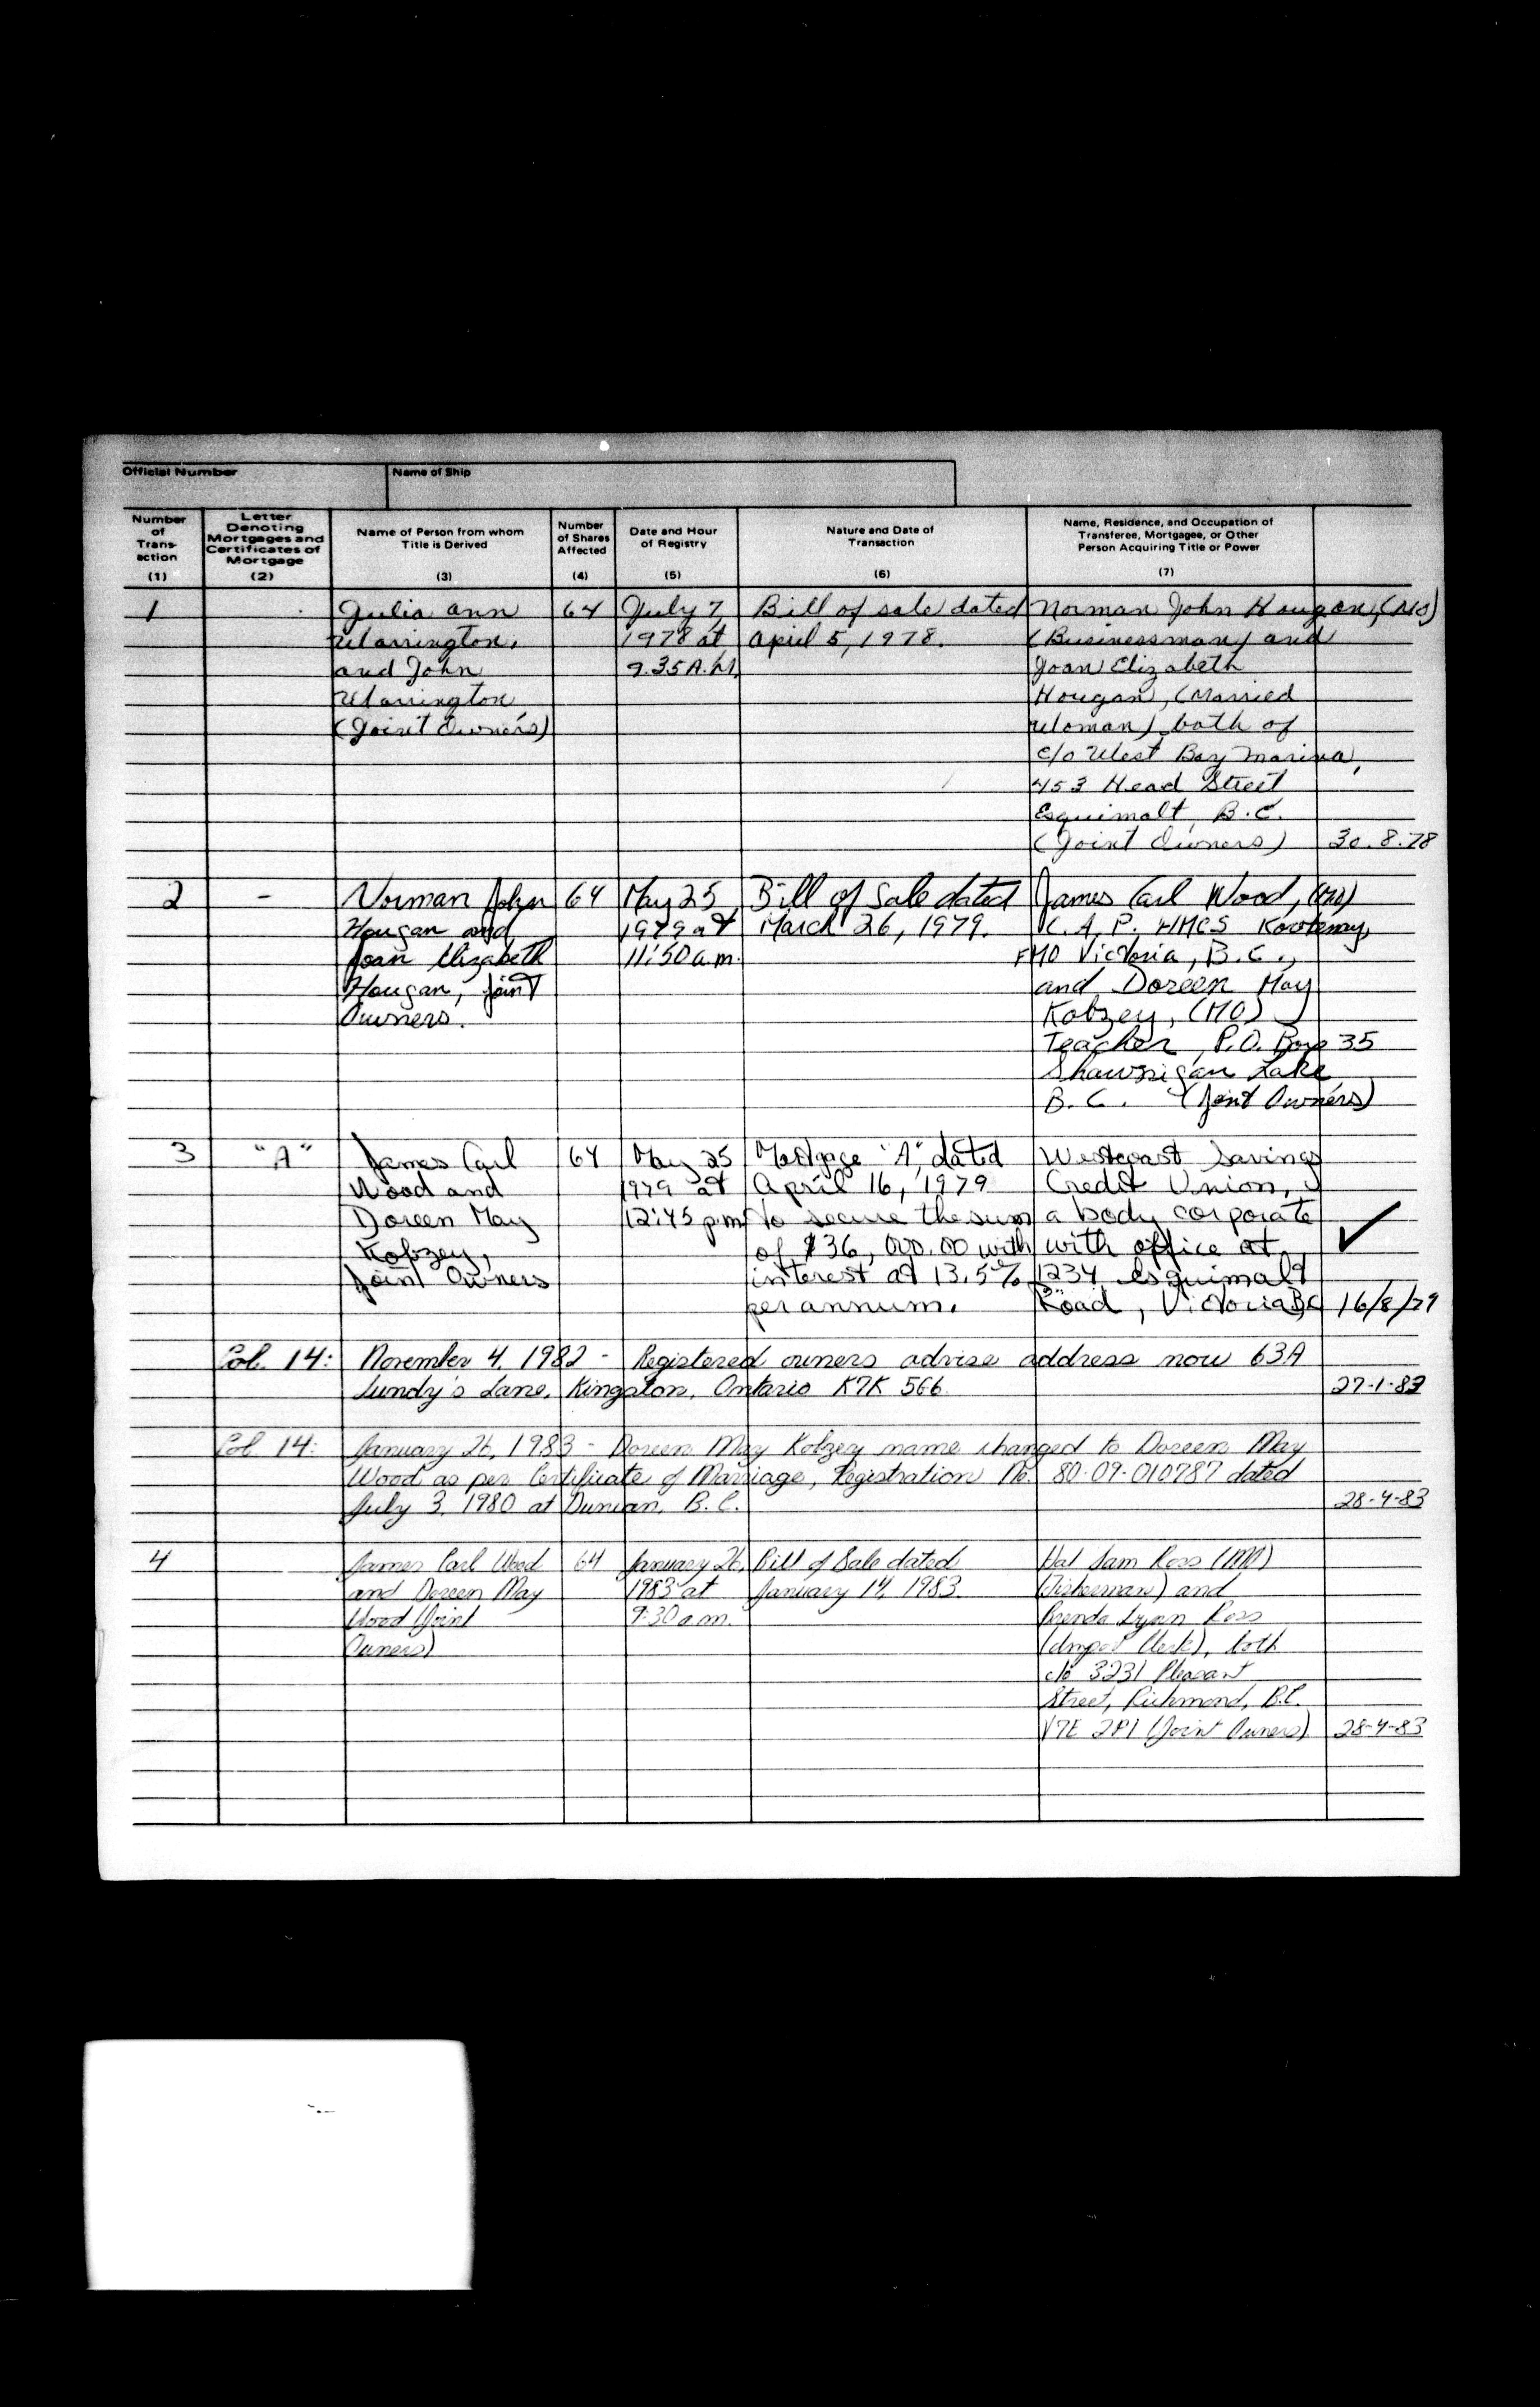 Official Number Name of Ship
Number of Trans- action (1) Letter Denoting Mortgages and Certificates of Mortgage (2) Name of Person from whom Title is Derived (3) Number of Shares Affected (4) Date and Hour of Registry (5) Nature and Date of Transaction (6) Name, Residence, and Occupation of Transferee, Mortgagee, or Other Person Acquiring Title or Power (7)
1 Julia Ann 64 July 7, Bill of sale dated Norman John Hougan, (MO)
Warrington, 1978 at April 5, 1978. (Businessman) and
and John 9.35 A.M. Joan Elizabeth
Warrington Hougan, (Married
(Joint Owners) Woman) both of
c/o West Bay Marina,
453 Head Street
Esquimalt, B.C.
(Joint Owners) 30.8.78
2 - Norman John 64 May 25 Bill of Sale dated James Carl Wood, (MO)
Hougan and 1979 at March 26, 1979. C.A.P. HMCS Kootenay,
Joan Elizabeth 11:50 a.m. FMO Victoria, B.C.,
Hougan, Joint and Doreen May
Owners. Kobzey, (MO)
Teacher, P.O. Box 35
Shawnigan Lake
B.C. (Joint Owners)
3 "A" James Carl 64 May 25 Mortgage "A" dated Westcoast Savings
Wood and 1979 at April 16, 1979 Credit Union,
Doreen May 12:45 pm to secure the sum a body corporate
Kobzey, of $36,000.00 with with office at
Joint Owners interest at 13.5% 1234 Esquimalt
per annum. Road, Victoria BC 16/8/79
Col. 14: November 4, 1982 - Registered owners advise address now 63A
Lundy's Lane, Kingston, Ontario K7K 5G6 27-1-83
Col. 14: January 26, 1983 - Doreen May Kobzey name changed to Doreen May
Wood as per Certificate of Marriage, Registration No. 80-09-010787 dated
July 3, 1980 at Duncan, B.C. 28-4-83
4 James Carl Wood 64 January 26, Bill of Sale dated Hal Sam Ross (MO)
and Doreen May 1983 at January 14, 1983. (Fisherman) and
Wood (Joint 9:30 a.m. Brenda Lynn Ross
Owners) Clerk), both
c/o 3231 Pleasant
Street, Richmond, B.C.
V7E 2P1 (Joint Owners) 28-4-83